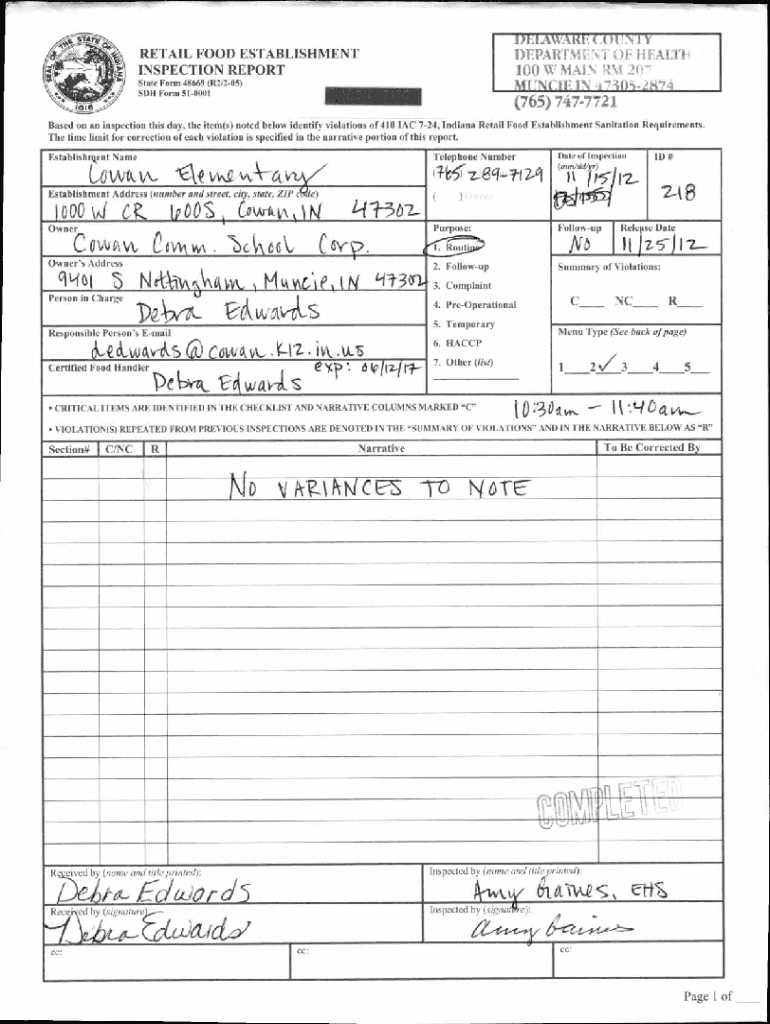 RETAIL FOOD ESTABLISHMENT
INSPECTION REPORT
State Form 48669 (R2/2-05)
SDH Form 51-0001
SEAL OF THE STATE OF INDIANA
1816
DELAWARE COUNTY
DEPARTMENT OF HEALTH
100 W MAIN RM 207
MUNCIE IN 47305-2874
(765) 747-7721
Based on an inspection this day, the item(s) noted below identify violations of 410 IAC 7-24, Indiana Retail Food Establishment Sanitation Requirements.
The time limit for correction of each violation is specified in the narrative portion of this report.
Establishment Name
Cowan Elementary
Telephone Number
(765) 289-7129
Date of Inspection
(mm/dd/yr)
11/15/12
ID #
218
Establishment Address (number and street, city, state, ZIP code)
1000 W CR 600S, Cowan, IN 47302
( ) Owner
Owner
Cowan Comm. School Corp.
Purpose:
1. Routine
Follow-up
No
Release Date
11/25/12
Owner's Address
9401 S Nottingham, Muncie, IN 47302
2. Follow-up
Summary of Violations:
3. Complaint
Person in Charge
Debra Edwards
4. Pre-Operational
C____ NC____ R____
5. Temporary
Responsible Person's E-mail
dedwards@cowan.k12.in.us
6. HACCP
Menu Type (See back of page)
Certified Food Handler
exp: 06/12/17
Debra Edwards
7. Other (list)
1____2✓3____4____5____
• CRITICAL ITEMS ARE IDENTIFIED IN THE CHECKLIST AND NARRATIVE COLUMNS MARKED "C"
10:30am - 11:40am
• VIOLATION(S) REPEATED FROM PREVIOUS INSPECTIONS ARE DENOTED IN THE "SUMMARY OF VIOLATIONS" AND IN THE NARRATIVE BELOW AS "R"
Section# C/NC R Narrative To Be Corrected By
NO VARIANCES TO NOTE
COMPLETED
Received by (name and title printed):
Debra Edwards
Inspected by (name and title printed):
Amy Gaines, EHS
Received by (signature):
Debra Edwards
Inspected by (signature):
Amy Gaines
cc: cc: cc:
Page 1 of ____